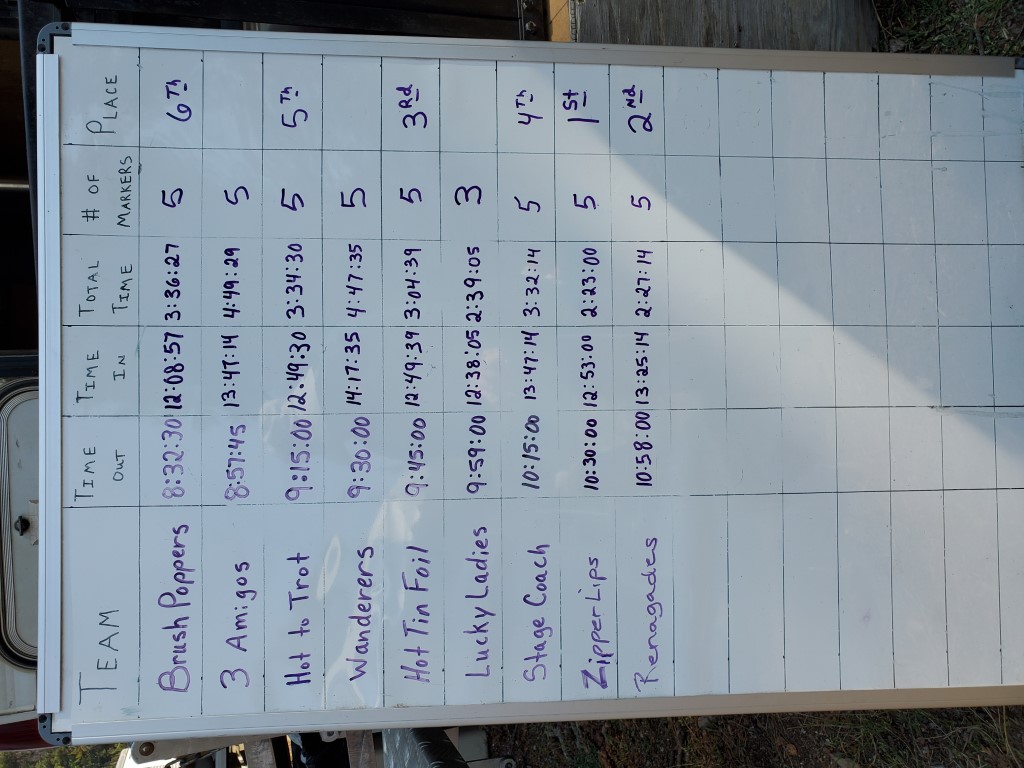 TEAM TIME OUT TIME IN TOTAL TIME # OF MARKERS PLACE
Brush Poppers 8:32:30 12:08:57 3:36:27 5 6Th
3 Amigos 8:57:45 13:47:14 4:49:29 5
Hot to Trot 9:15:00 12:49:30 3:34:30 5 5Th
Wanderers 9:30:00 14:17:35 4:47:35 5
Hot Tin Foil 9:45:00 12:49:39 3:04:39 5 3Rd
Lucky Ladies 9:59:00 12:38:05 2:39:05 3
Stage Coach 10:15:00 13:47:14 3:32:14 5 4Th
Zipper Lips 10:30:00 12:53:00 2:23:00 5 1St
Renagades 10:58:00 13:25:14 2:27:14 5 2Nd